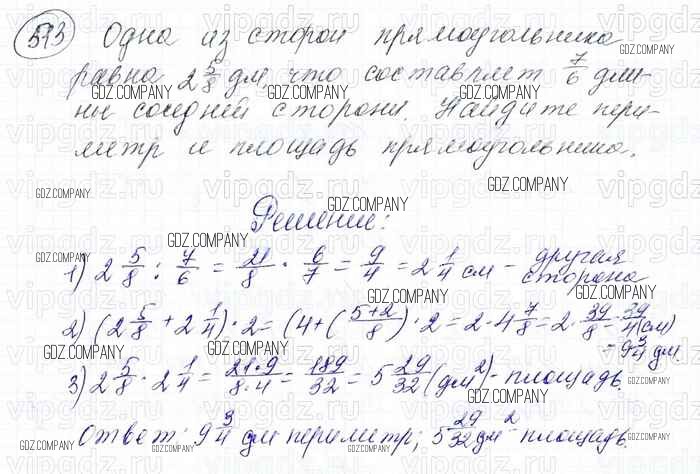 593 Одна из сторон прямоугольника
равна 2 5/8 дм, что составляет 7/6 дли-
ны соседней стороны. Найдите пери-
метр и площадь прямоугольника.
Решение:
1) 2 5/8 : 7/6 = 21/8 · 6/7 = 9/4 = 2 1/4 см - другая
сторона
2) (2 5/8 + 2 1/4) · 2 = (4 + (5+2/8) · 2 = 2 · 4 7/8 = 2 · 39/8 = 39/4 (см)
= 9 3/4 дм.
3) 2 5/8 · 2 1/4 = 21·9/8·4 = 189/32 = 5 29/32 (дм²) - площадь.
Ответ: 9 3/4 дм периметр; 5 29/32 дм² площадь.